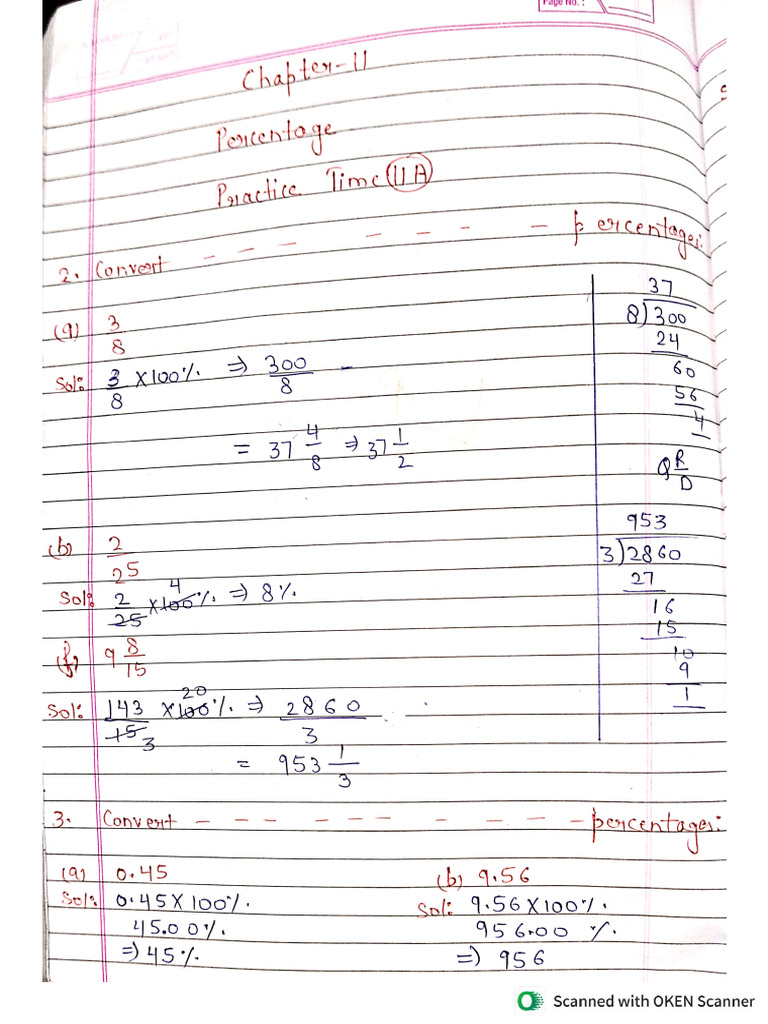 Page No. :
Chapter-11
Percentage
Practice Time 11A
2. Convert - - - - - - - percentages:
(a) 3/8
Sol: 3/8 ×100% ⇒ 300/8
= 37 4/8 ⇒ 37 1/2
37
8)300
24
60
56
4
Q R/D
(b) 2/25
Sol: 2/25 ×100% 4 ⇒ 8%
(f) 9 8/15
Sol: 143/15 3 ×100% 20 ⇒ 2860/3
= 953 1/3
953
3)2860
27
16
15
10
9
1
3. Convert - - - - - - - - - - percentages:
(a) 0.45
Sol: 0.45×100%
45.00%
⇒ 45%
(b) 9.56
Sol: 9.56×100%
956.00 %
⇒ 956
Scanned with OKEN Scanner